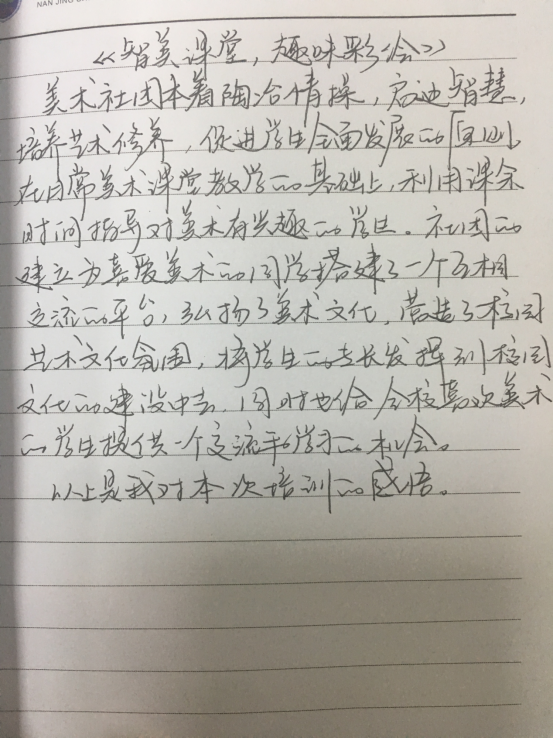 NAN JING
《智美课堂，趣味彩绘》
美术社团本着陶冶情操，启迪智慧，
培养艺术修养，促进学生全面发展的原则，
在日常美术课堂教学的基础上，利用课余
时间指导对美术有兴趣的学生。社团的
建立为喜爱美术的同学搭建了一个互相
交流的平台，弘扬了美术文化，营造了校园
艺术文化氛围，将学生的专长发挥到校园
文化的建设中去，同时也给全校喜欢美术
的学生提供一个交流和学习的机会。
以上是我对本次培训的感悟。